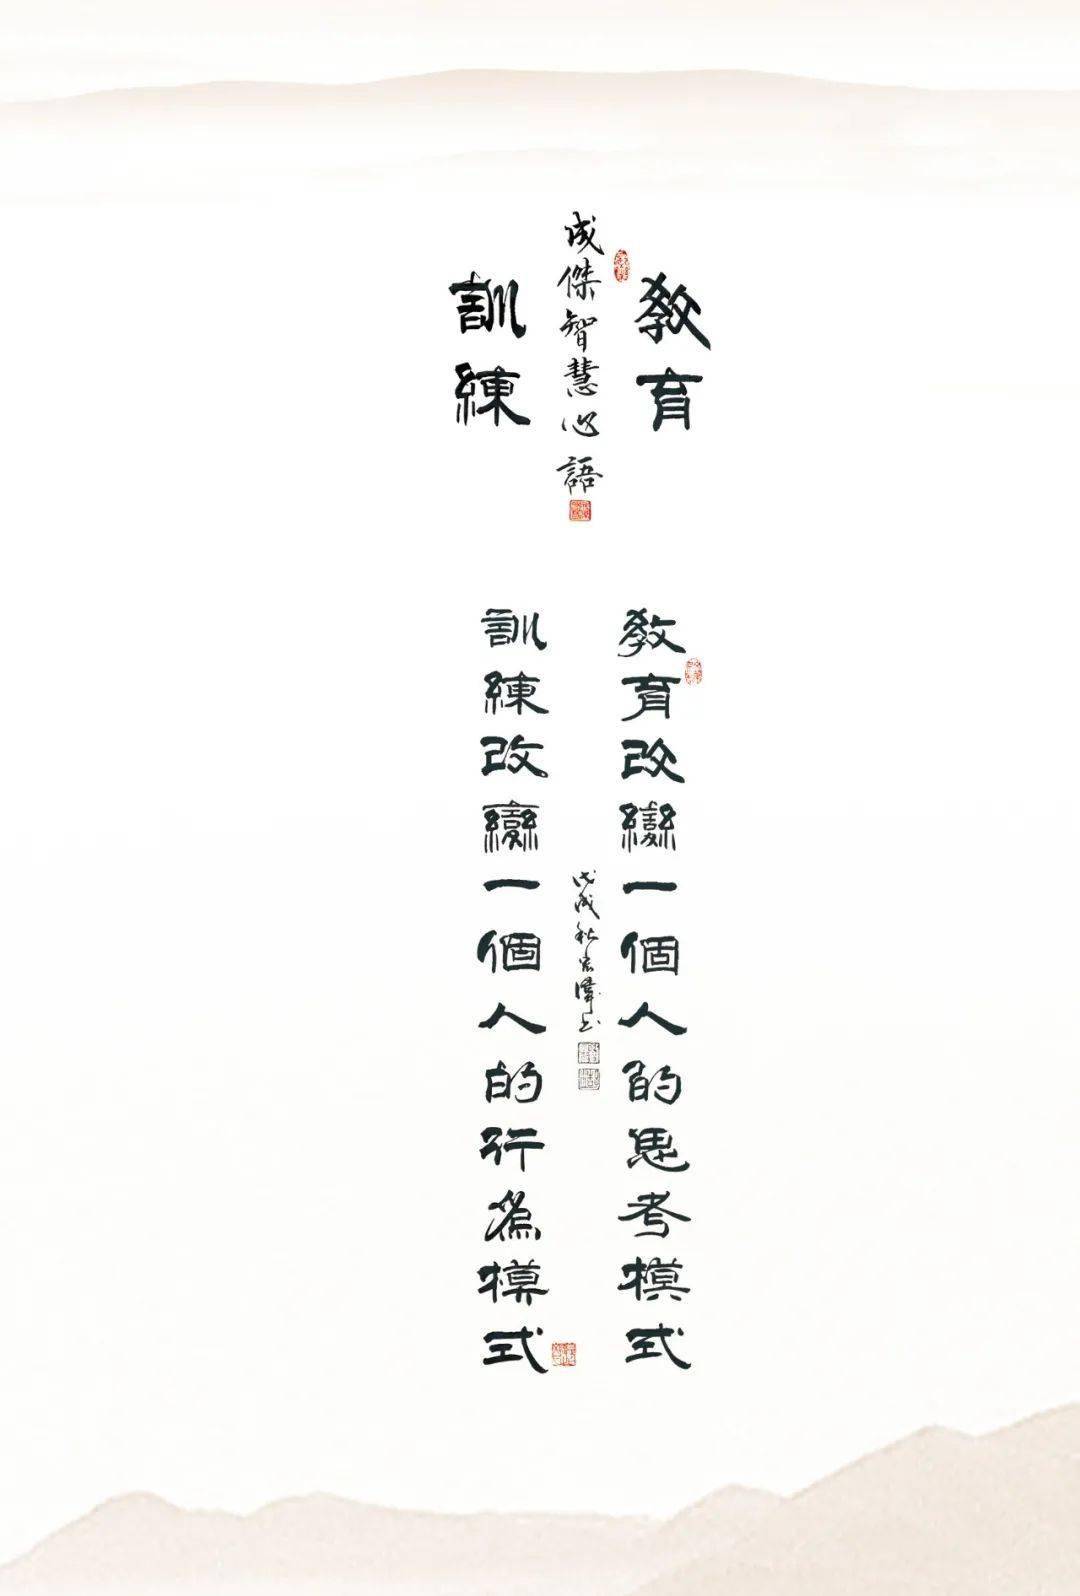 教育
成傑智慧心語
訓練
教育改變一個人的思考模式
戊戌秋宏偉书
訓練改變一個人的行為模式